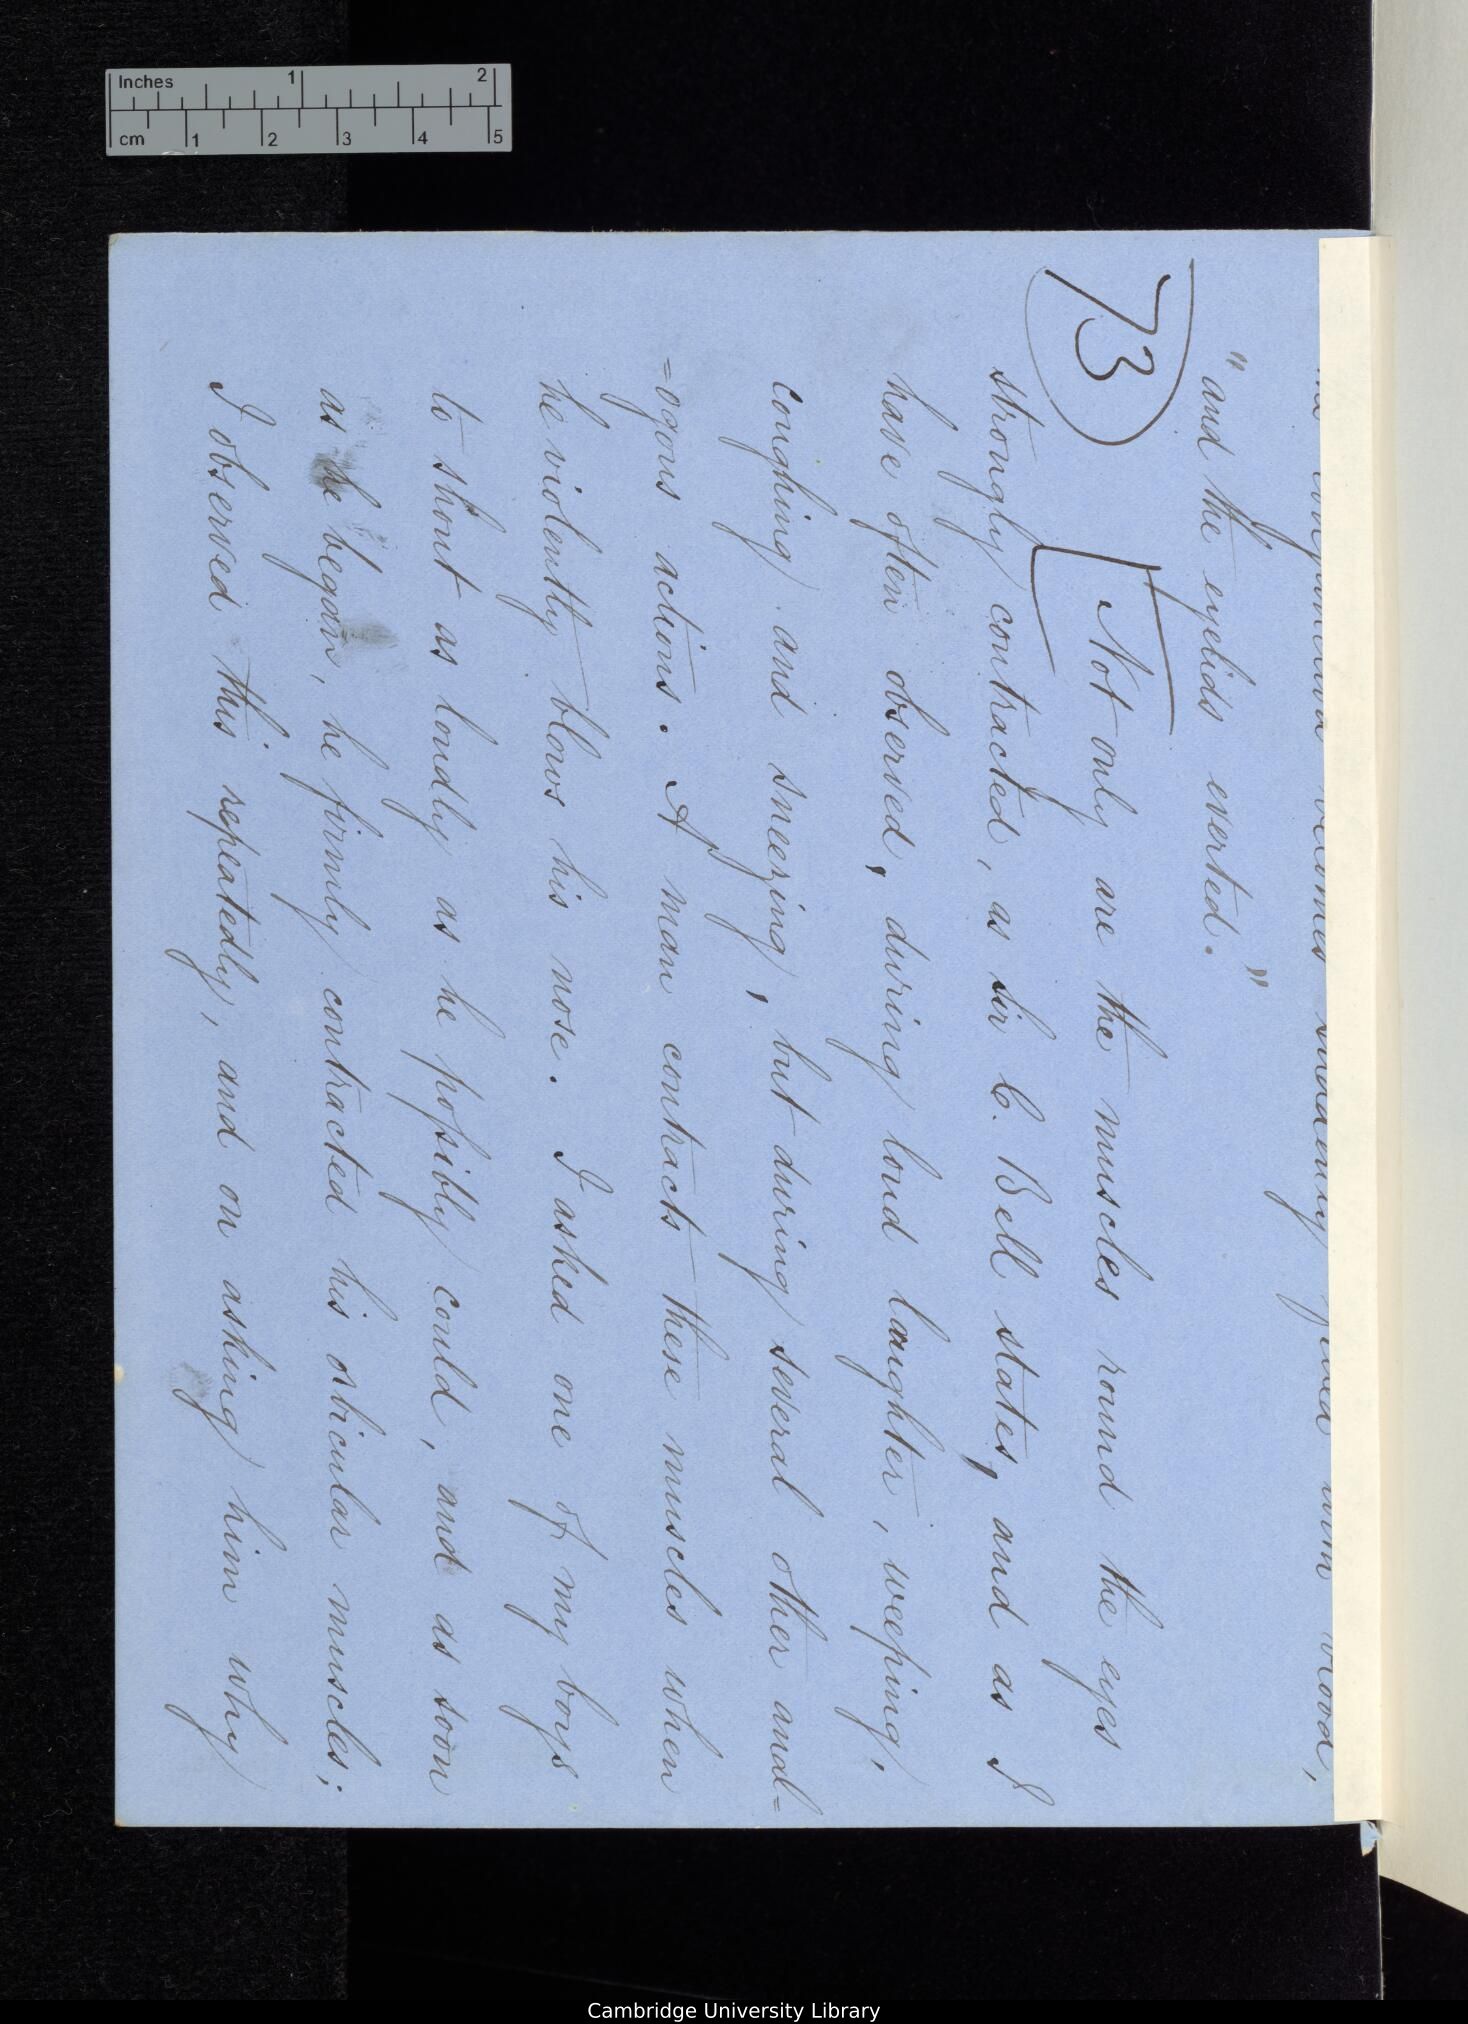 Inches 1 2
cm 1 2 3 4 5
suddenly filled with blood,
"and the eyelids everted."
73
Not only are the muscles round the eyes
strongly contracted, as Sir C. Bell states, and as I
have often observed, during loud laughter, weeping,
coughing and sneezing, but during several other anal=
=ogous actions. A man contracts these muscles when
he violently blows his nose. I asked one of my boys
to shout as loudly as he possibly could, and as soon
as he began, he firmly contracted his orbicular muscles;
I observed this repeatedly, and on asking him why
Cambridge University Library